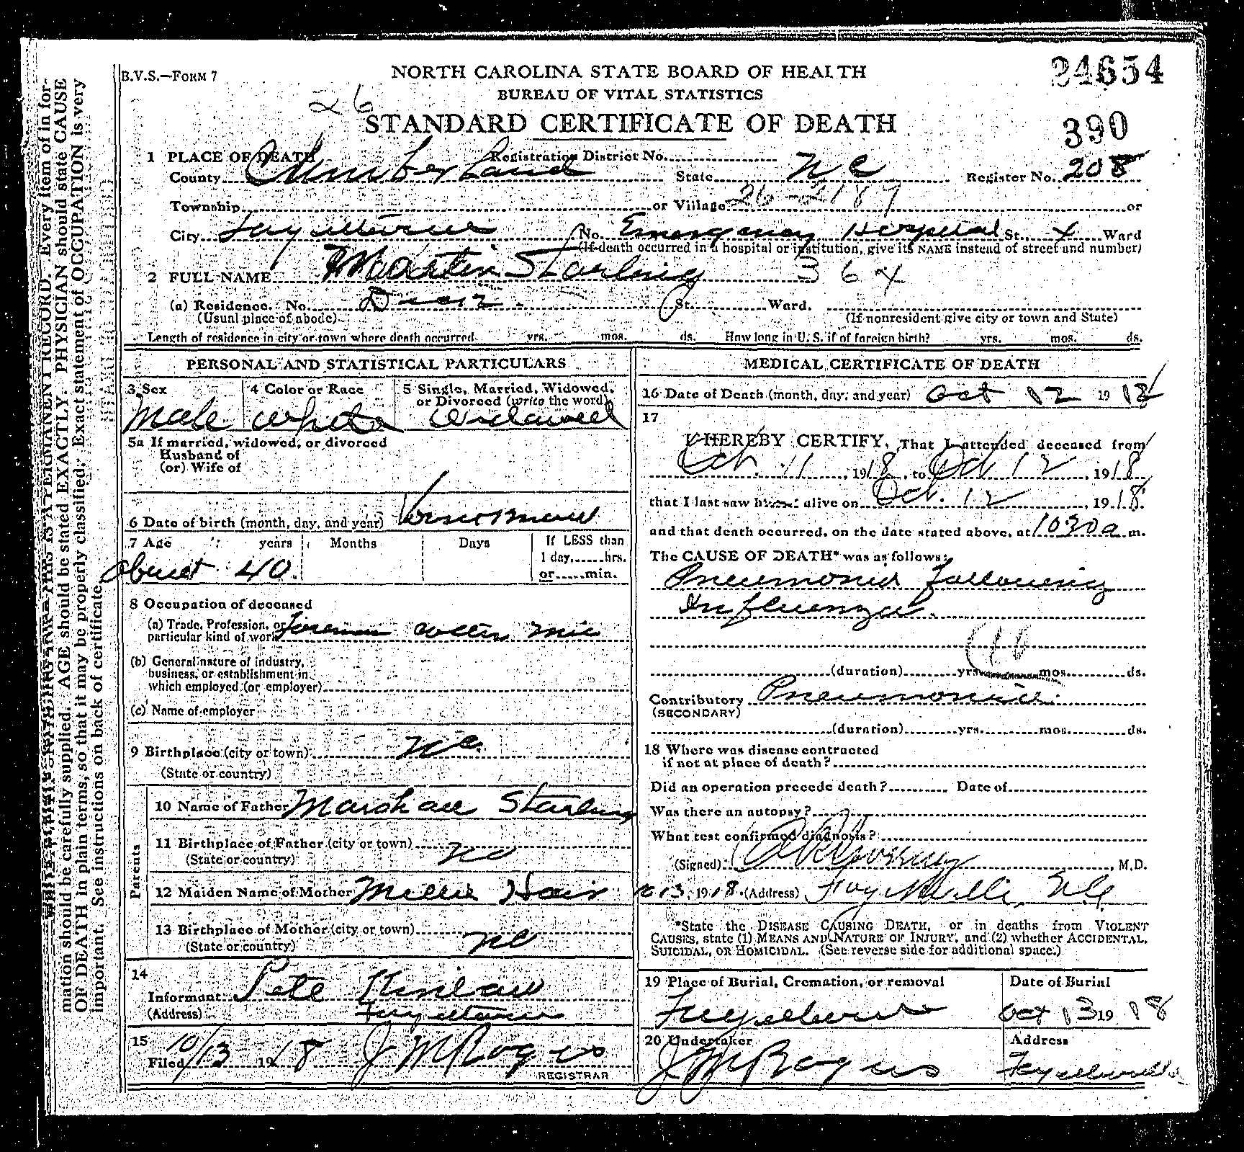 B.V.S.—FORM 7
NORTH CAROLINA STATE BOARD OF HEALTH
BUREAU OF VITAL STATISTICS
24654
26
STANDARD CERTIFICATE OF DEATH
390
1 PLACE OF DEATH Registration District No.
County Cumberland State NC Register No. 208
Township or Village 26-2187 or
City Fayetteville (No. Emergency Hospital St. 4 Ward
(If death occurred in a hospital or institution, give its NAME instead of street and number)
2 FULL NAME Martin Starling 364
(a) Residence. No. St. Ward.
(Usual place of abode) (If nonresident give city or town and State)
Length of residence in city or town where death occurred yrs. mos. ds. How long in U. S. if of foreign birth? yrs. mos. ds.
PERSONAL AND STATISTICAL PARTICULARS
3 Sex 4 Color or Race 5 Single, Married, Widowed, or Divorced (write the word)
Male White Widowed
5a If married, widowed, or divorced
Husband of
(or) Wife of
6 Date of birth (month, day, and year)
7 Age years Months Days If LESS than 1 day......hrs. or......min.
about 40.
8 Occupation of deceased
(a) Trade, Profession, or
particular kind of work Foreman Cotton Mill
(b) General nature of industry,
business, or establishment in
which employed (or employer)
(c) Name of employer
9 Birthplace (city or town) NC.
(State or country)
Parents
10 Name of Father Marshall Starling
11 Birthplace of Father (city or town)
(State or country) NC
12 Maiden Name of Mother Millie Hair
13 Birthplace of Mother (city or town)
(State or country) NC
14
Informant Pete Kinlaw
(Address) Fayetteville
15
Filed 10/13 1918 J M Rogers
REGISTRAR
MEDICAL CERTIFICATE OF DEATH
16 Date of Death (month, day, and year) Oct 12 1918
17
I HEREBY CERTIFY, That I attended deceased from
Oct. 11, 1918 to Oct 12, 1918
that I last saw h alive on Oct. 12, 1918
and that death occurred, on the date stated above, at 1030a m.
The CAUSE OF DEATH* was as follows:
Pneumonia following
Influenza.
(duration) yrs. mos. ds.
Contributory Pneumonia
(SECONDARY)
(duration) yrs. mos. ds.
18 Where was disease contracted
if not at place of death?
Did an operation precede death? Date of
Was there an autopsy?
What test confirmed diagnosis?
(Signed) M.D.
10 13, 1918 (Address) Fayetteville, N.C.
*State the DISEASE CAUSING DEATH, or in deaths from VIOLENT
CAUSES, state (1) MEANS AND NATURE OF INJURY, and (2) whether ACCIDENTAL,
SUICIDAL, OR HOMICIDAL. (See reverse side for additional space.)
19 Place of Burial, Cremation, or removal Date of Burial
Fayetteville Oct 13 1918
20 Undertaker Address
J M Rogers Fayetteville
mation should be carefully supplied. AGE should be stated EXACTLY. PHYSICIAN should state CAUSE
OF DEATH in plain terms, so that it may be properly classified. Exact statement of OCCUPATION is very
important. See instructions on back of certificate.